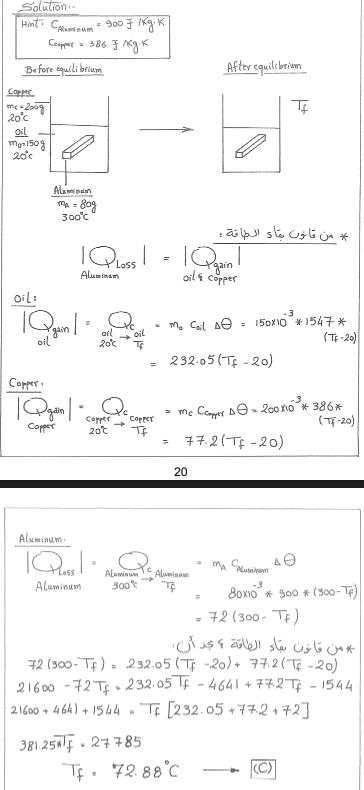 Solution:-
Hint: C Aluminum = 900 J /Kg.K
C copper = 386 J /Kg.K
Before equilibrium
After equilibrium
Copper
mc=200g
20°C
Oil
mo=150g
20°C
Tf
Aluminum
mA = 80g
300°C
* من قانون بقاء الطاقة :
|Q Loss| = |Q gain|
Aluminum Oil & Copper
Oil:
|Q gain| = Qc = mo Coil ΔΘ = 150x10⁻³ * 1547 * (Tf-20)
oil oil 20°C → oil Tf
= 232.05 (Tf - 20)
Copper:
|Q gain| = Qc = mc Ccopper ΔΘ = 200x10⁻³ * 386 * (Tf-20)
Copper Copper 20°C → Copper Tf
= 77.2 (Tf - 20)
20
Aluminum:
|Q Loss| = Qc = mA CAluminum ΔΘ
Aluminum Aluminum 300°C → Aluminum Tf
= 80x10⁻³ * 900 * (300-Tf)
= 72 (300 - Tf)
* من قانون بقاء الطاقة نجد أن :
72 (300 - Tf) = 232.05 (Tf - 20) + 77.2 (Tf - 20)
21600 - 72Tf = 232.05Tf - 4641 + 77.2Tf - 1544
21600 + 4641 + 1544 = Tf [232.05 + 77.2 + 72]
381.25*Tf = 27785
Tf = 72.88°C → (C)